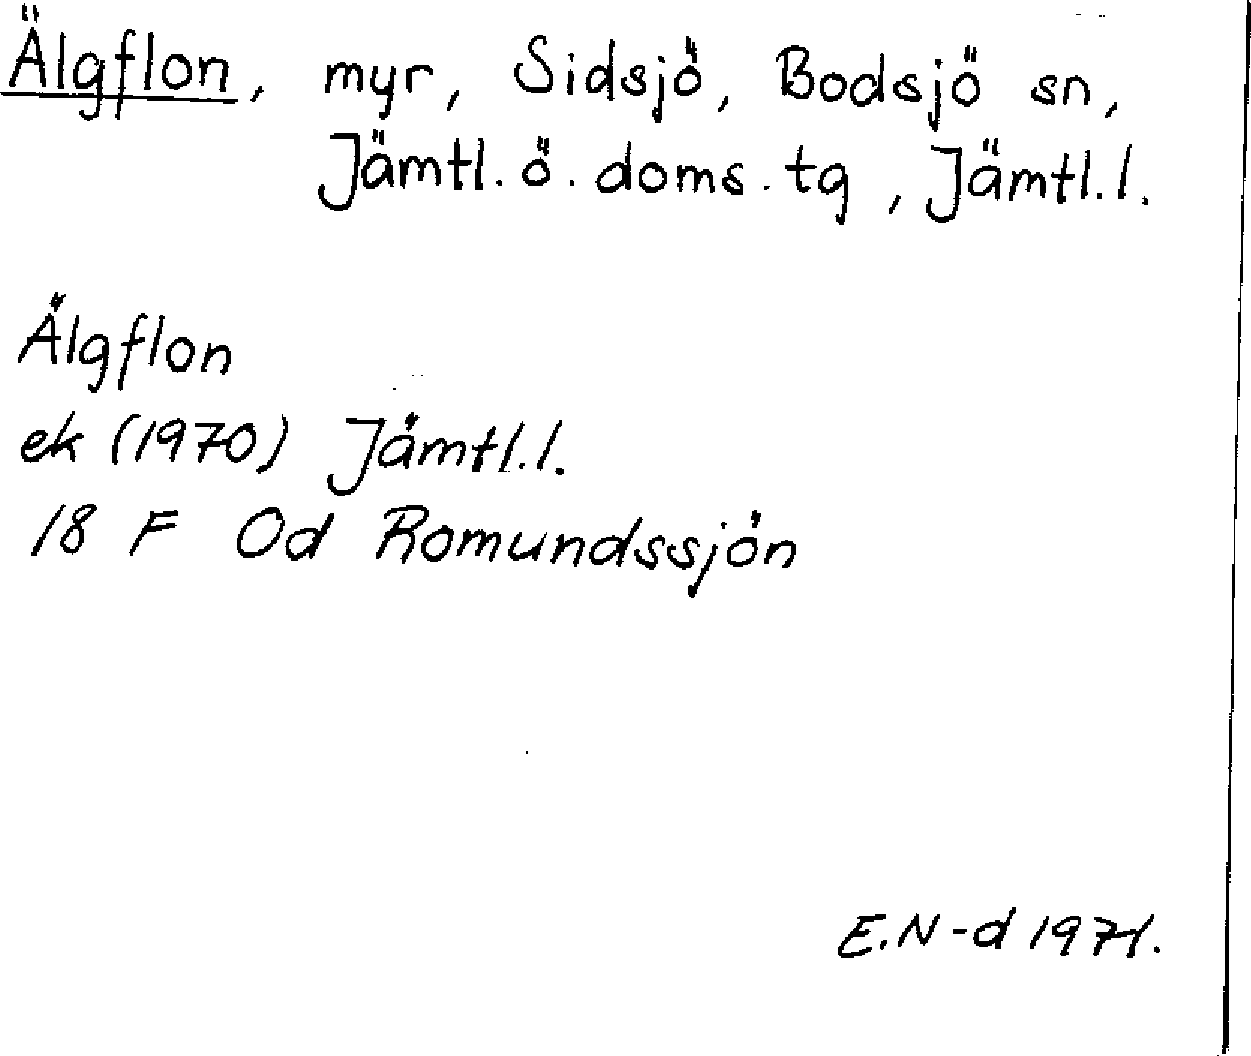 Älgflon, myr, Sidsjö, Bodsjö sn,
Jämtl. ö. doms. tg, Jämtl.l.
Älgflon
ek (1970) Jämtl.l.
18 F Od Romundssjön
E.N-d 1971.